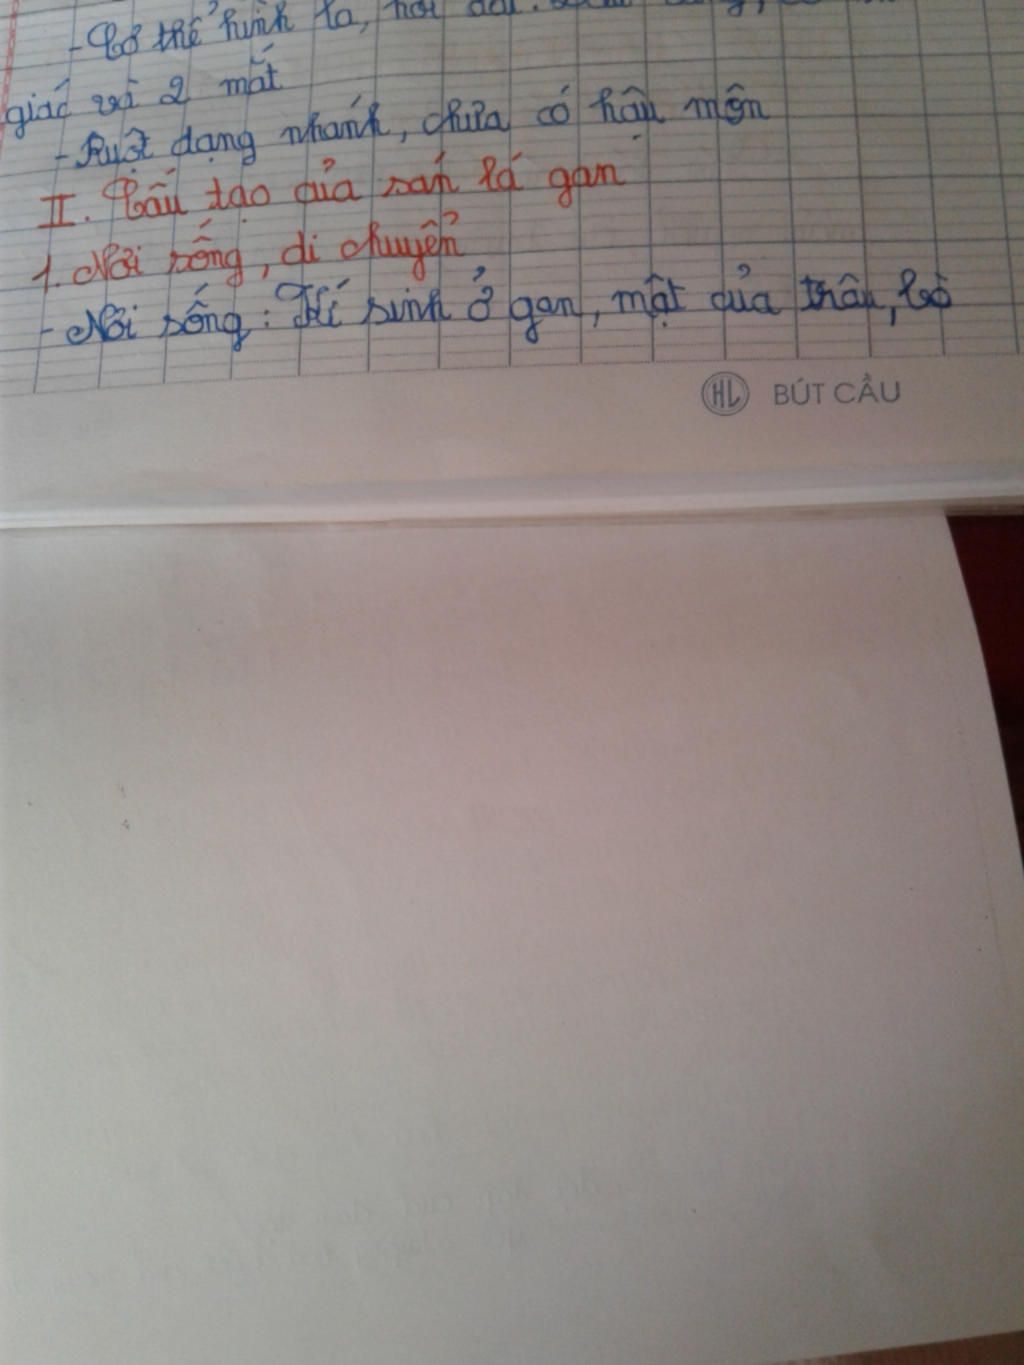 - Cơ thể hình lá, hơi dài.
giác và 2 mắt
- Ruột dạng nhánh, chưa có hậu môn
II. Cấu tạo của sán lá gan
1. Nơi sống, di chuyển
- Nơi sống: Kí sinh ở gan, mật của trâu, bò
HL BÚT CẦU